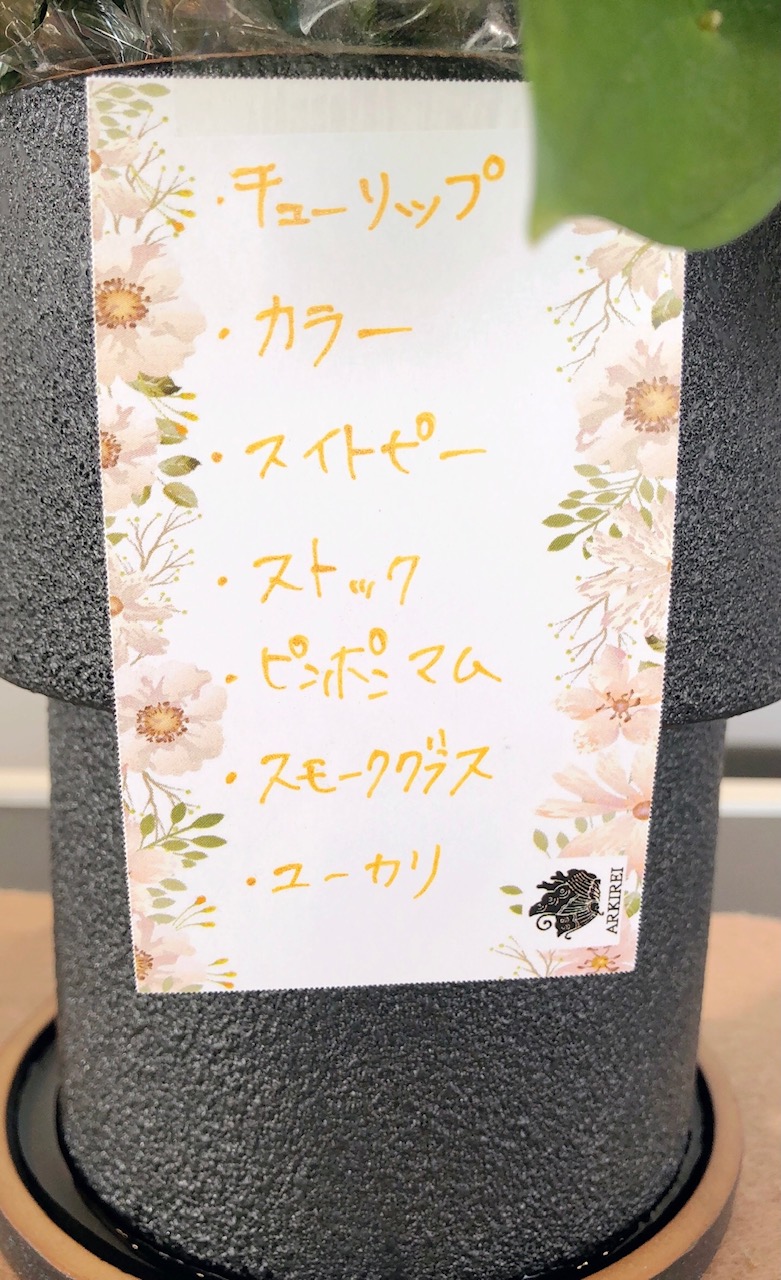 ・チューリップ
・カラー
・スイトピー
・ストック
・ピンポンマム
・スモークグラス
・ユーカリ
ARKIREI